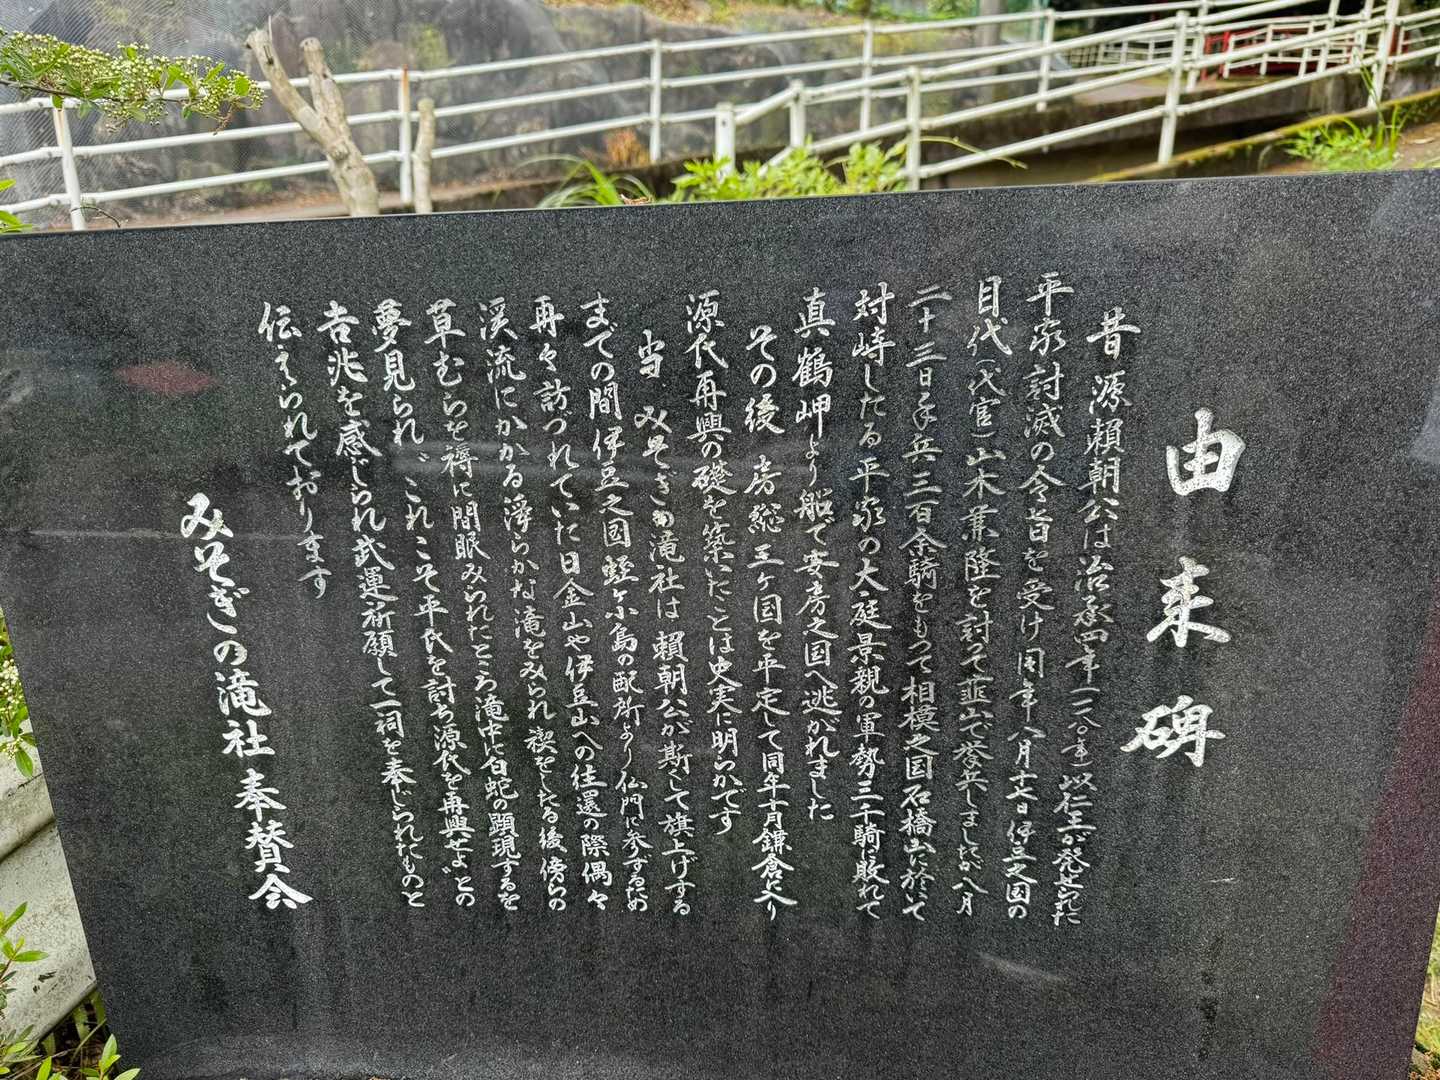 由来碑
昔源頼朝公は治承四年(一一八〇年)以仁王が発せられた
平家討滅の令旨を受け同年八月十七日伊豆之国の
目代(代官)山木兼隆を討って韮山で挙兵しましたが八月
二十三日手兵三百余騎をもって相模之国石橋山に於いて
対峙したる平家の大庭景親の軍勢三千騎に敗れて
真鶴岬より船で安房之国へ逃がれました
その後房総三ヶ国を平定して同年十月鎌倉に入り
源氏再興の礎を築いたことは史実に明らかです
当みそぎの滝社は頼朝公が斯くして旗上げする
までの間伊豆之国蛭ヶ小島の配所より仏門に参ずるため
再々訪づれていた日金山や伊豆山への往還の際偶々
渓流にかかる浄らかな滝をみられ禊をしたる後傍らの
草むらを褥に間眠みられたところ滝中に白蛇の顕現するを
夢見られ、これこそ平氏を討ち源氏を再興せよ"との
吉兆を感じられ武運祈願して一祠を奉じられたものと
伝えられております
みそぎの滝社奉賛会